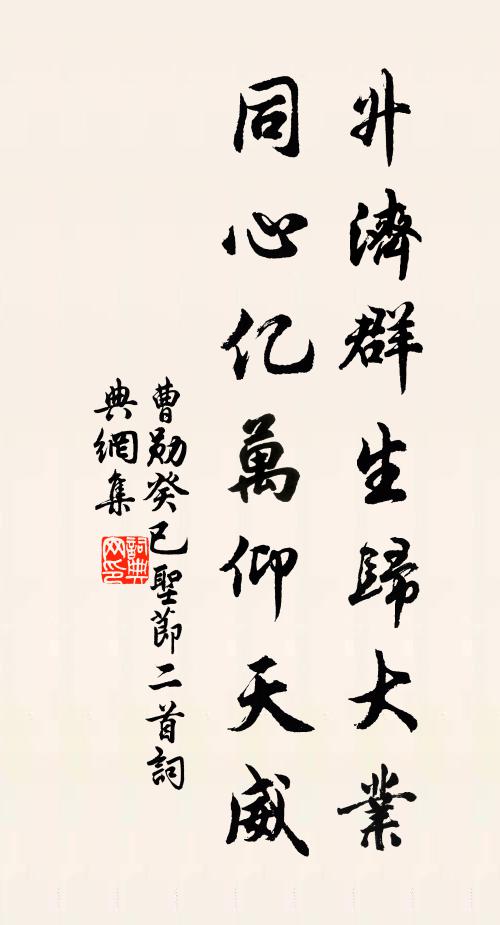 升濟群生歸大業
同心亿萬仰天威
曹勛癸巳聖節二首詞
典網集
詞典
网印